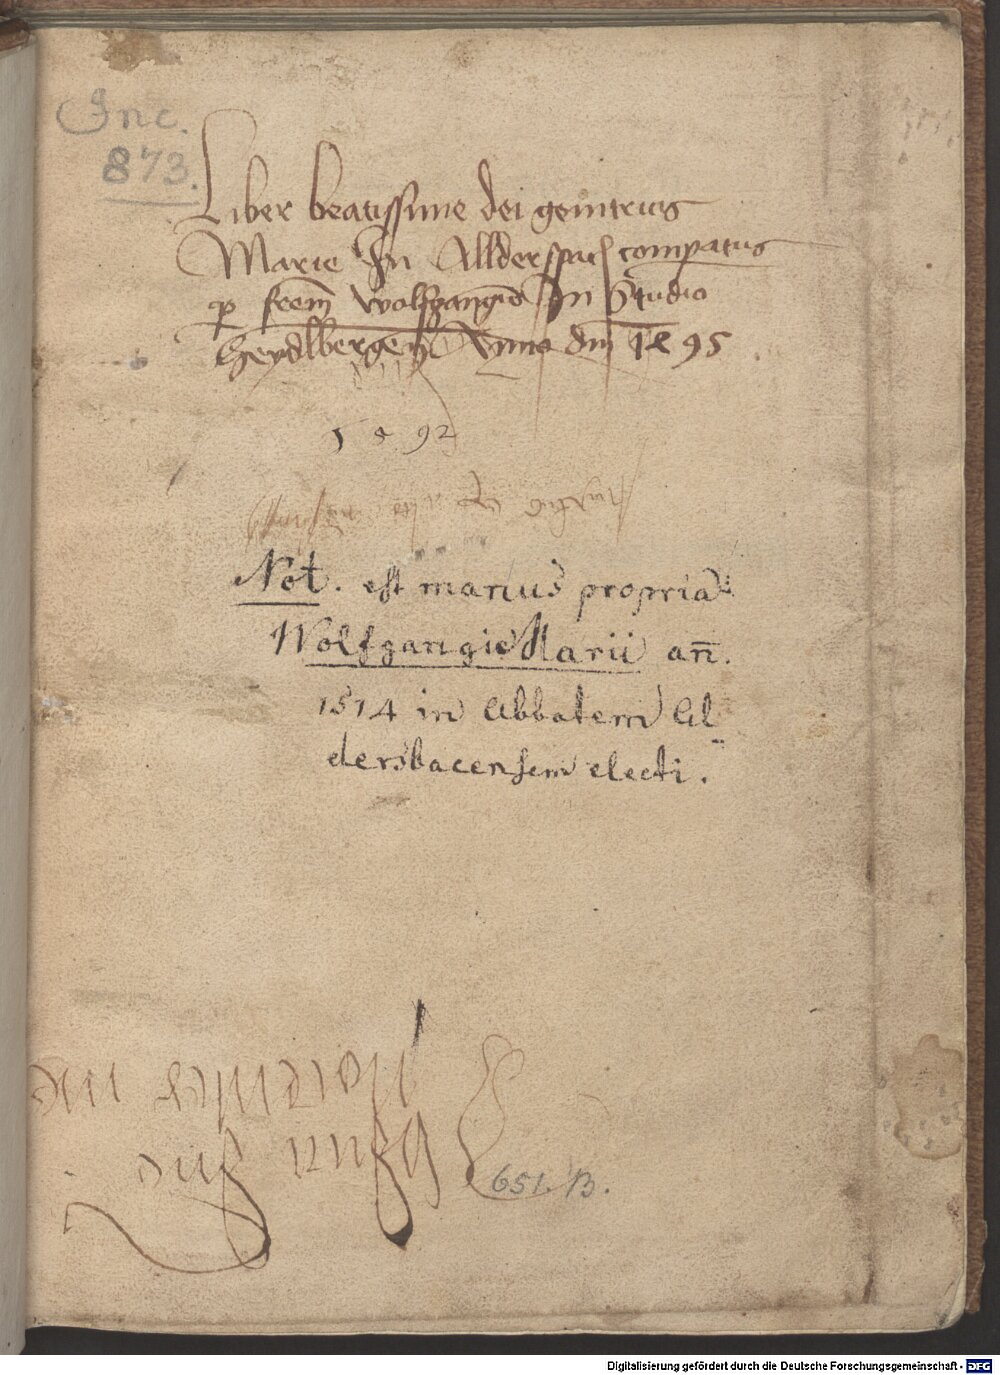 Inc.
873.
Liber beatissime dei genitricis
Marie In Allderspach comparatus
p frem wolfgangū In Studio
heydlbergen Anno dni 1495
1492
Not. est manus propria
Wolfgangi Marii añ.
1514 in Abbatem Al
dersbacensem electi.
651. B.
Digitalisierung gefördert durch die Deutsche Forschungsgemeinschaft - DFG